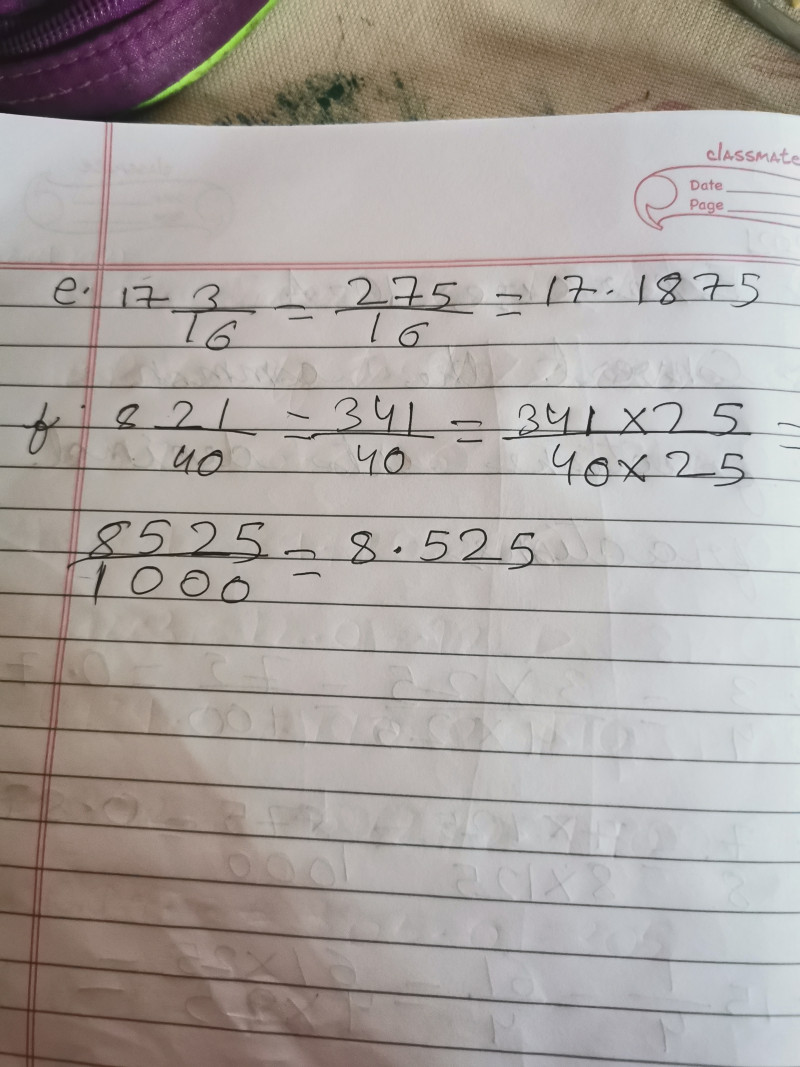 classmate
Date
Page
e. 17 3/16 = 275/16 = 17.1875
f. 8 21/40 = 341/40 = 341×25/40×25 =
8525/1000 = 8.525